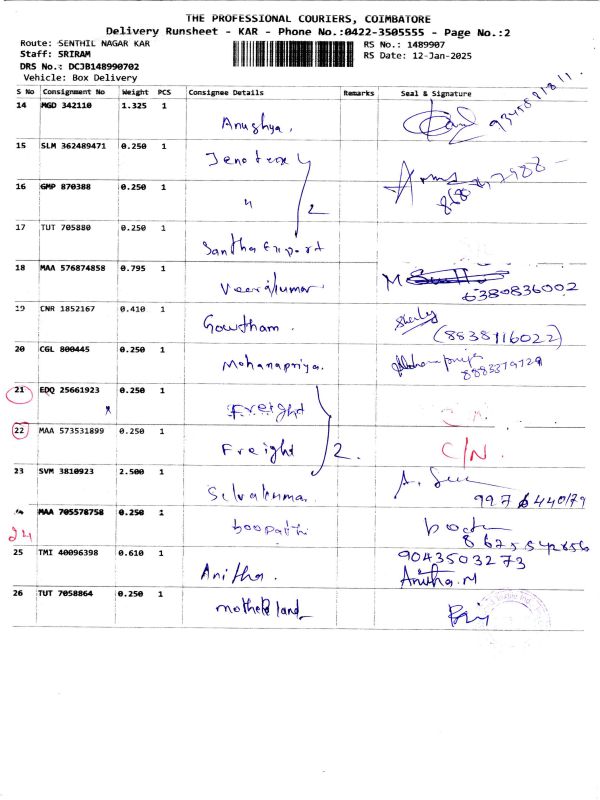 THE PROFESSIONAL COURIERS, COIMBATORE
Delivery Runsheet - KAR - Phone No.:0422-3505555 - Page No.:2
Route: SENTHIL NAGAR KAR
RS No.: 1489907
Staff: SRIRAM
RS Date: 12-Jan-2025
DRS No.: DCJB148990702
Vehicle: Box Delivery
S No Consignment No Weight PCS Consignee Details Remarks Seal & Signature
14 MGD 342110 1.325 1 Anushya.
15 SLM 362489471 0.250 1
16 GMP 870388 0.250 1 " 2
17 TUT 705880 0.250 1 Santha Export
18 MAA 576874858 0.795 1 Veerakumar
6380836002
19 CNR 1852167 0.410 1 Gowtham. (8838116022)
20 CGL 800445 0.250 1 Mohanapriya. Mohanapriya
21 EDQ 25661923 0.250 1 Freight
22 MAA 573531899 0.250 1 Freight 2. C/N.
23 SVM 3810923 2.500 1 Selvakumar.
24 MAA 705578758 0.250 1 boopathi
25 TMI 40096398 0.610 1 Anitha. 9043503273
Anitha.M
26 TUT 7058864 0.250 1 motherland